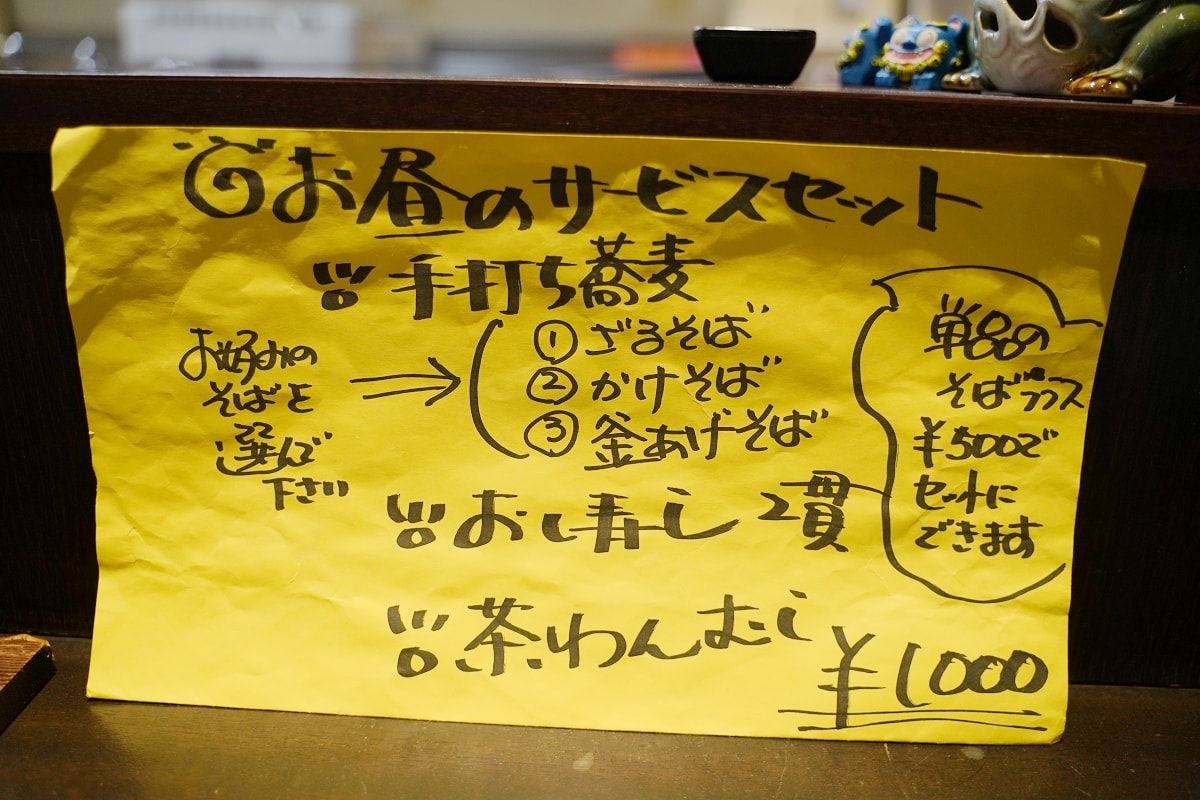 お昼のサービスセット
手打ち蕎麦
お好みの
そばを
選んで
下さい
① ざるそば
② かけそば
③ 釜あげそば
単品の
そばプラス
¥500で
セットに
できます
お寿し 2貫
茶わんむし
¥1000